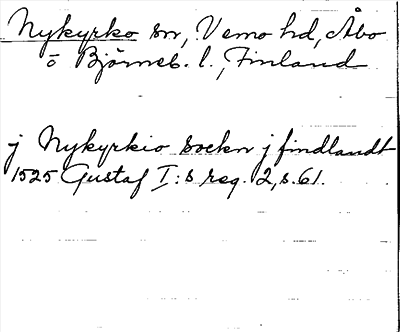 Nykyrko sn, Vemo hd, Åbo
o Björneb. l., Finland
j Nykyrkio sockn j findlandt
1525 Gustaf I:s reg. 2, s. 61.